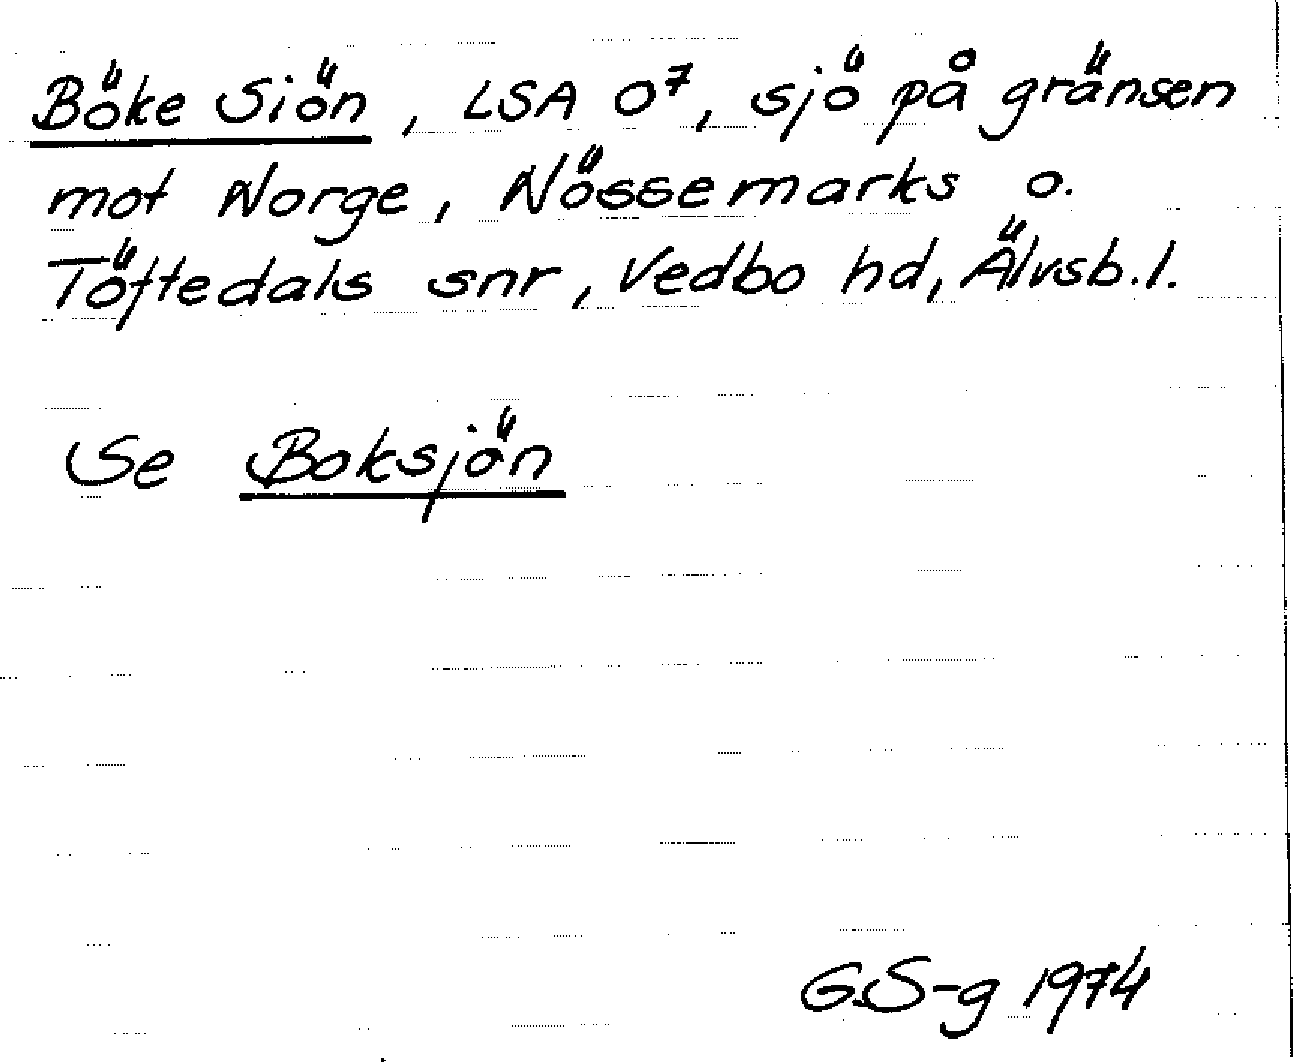 Böke Siön, LSA O⁷, sjö på gränsen
mot Norge, Nössemarks o.
Töftedals snr, Vedbo hd, Älvsb.l.
Se Boksjön
G.S-g 1974